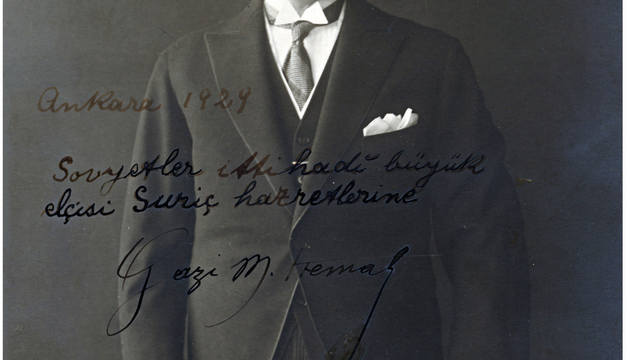 Ankara 1929
Sovyetler ittihadı büyük
elçisi Suriç hazretlerine
Gazi M. Kemal